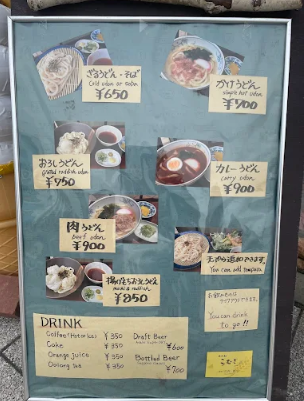 ざるうどん・そば
Cold udon or soba
¥650
かけうどん
simple hot udon
¥700
おろしうどん
grated raddish udon
¥750
カレーうどん
curry udon
¥900
肉うどん
beef udon
¥900
天ぷら追加できます。
You can add tempura.
揚げもちおろしうどん
¥850
You can drink
to go!!
DRINK
Coffee (Hot or Ice) ¥350
Coke ¥350
Orange juice ¥350
Oolong tea ¥350
Draft Beer
¥600
Bottled Beer
¥700